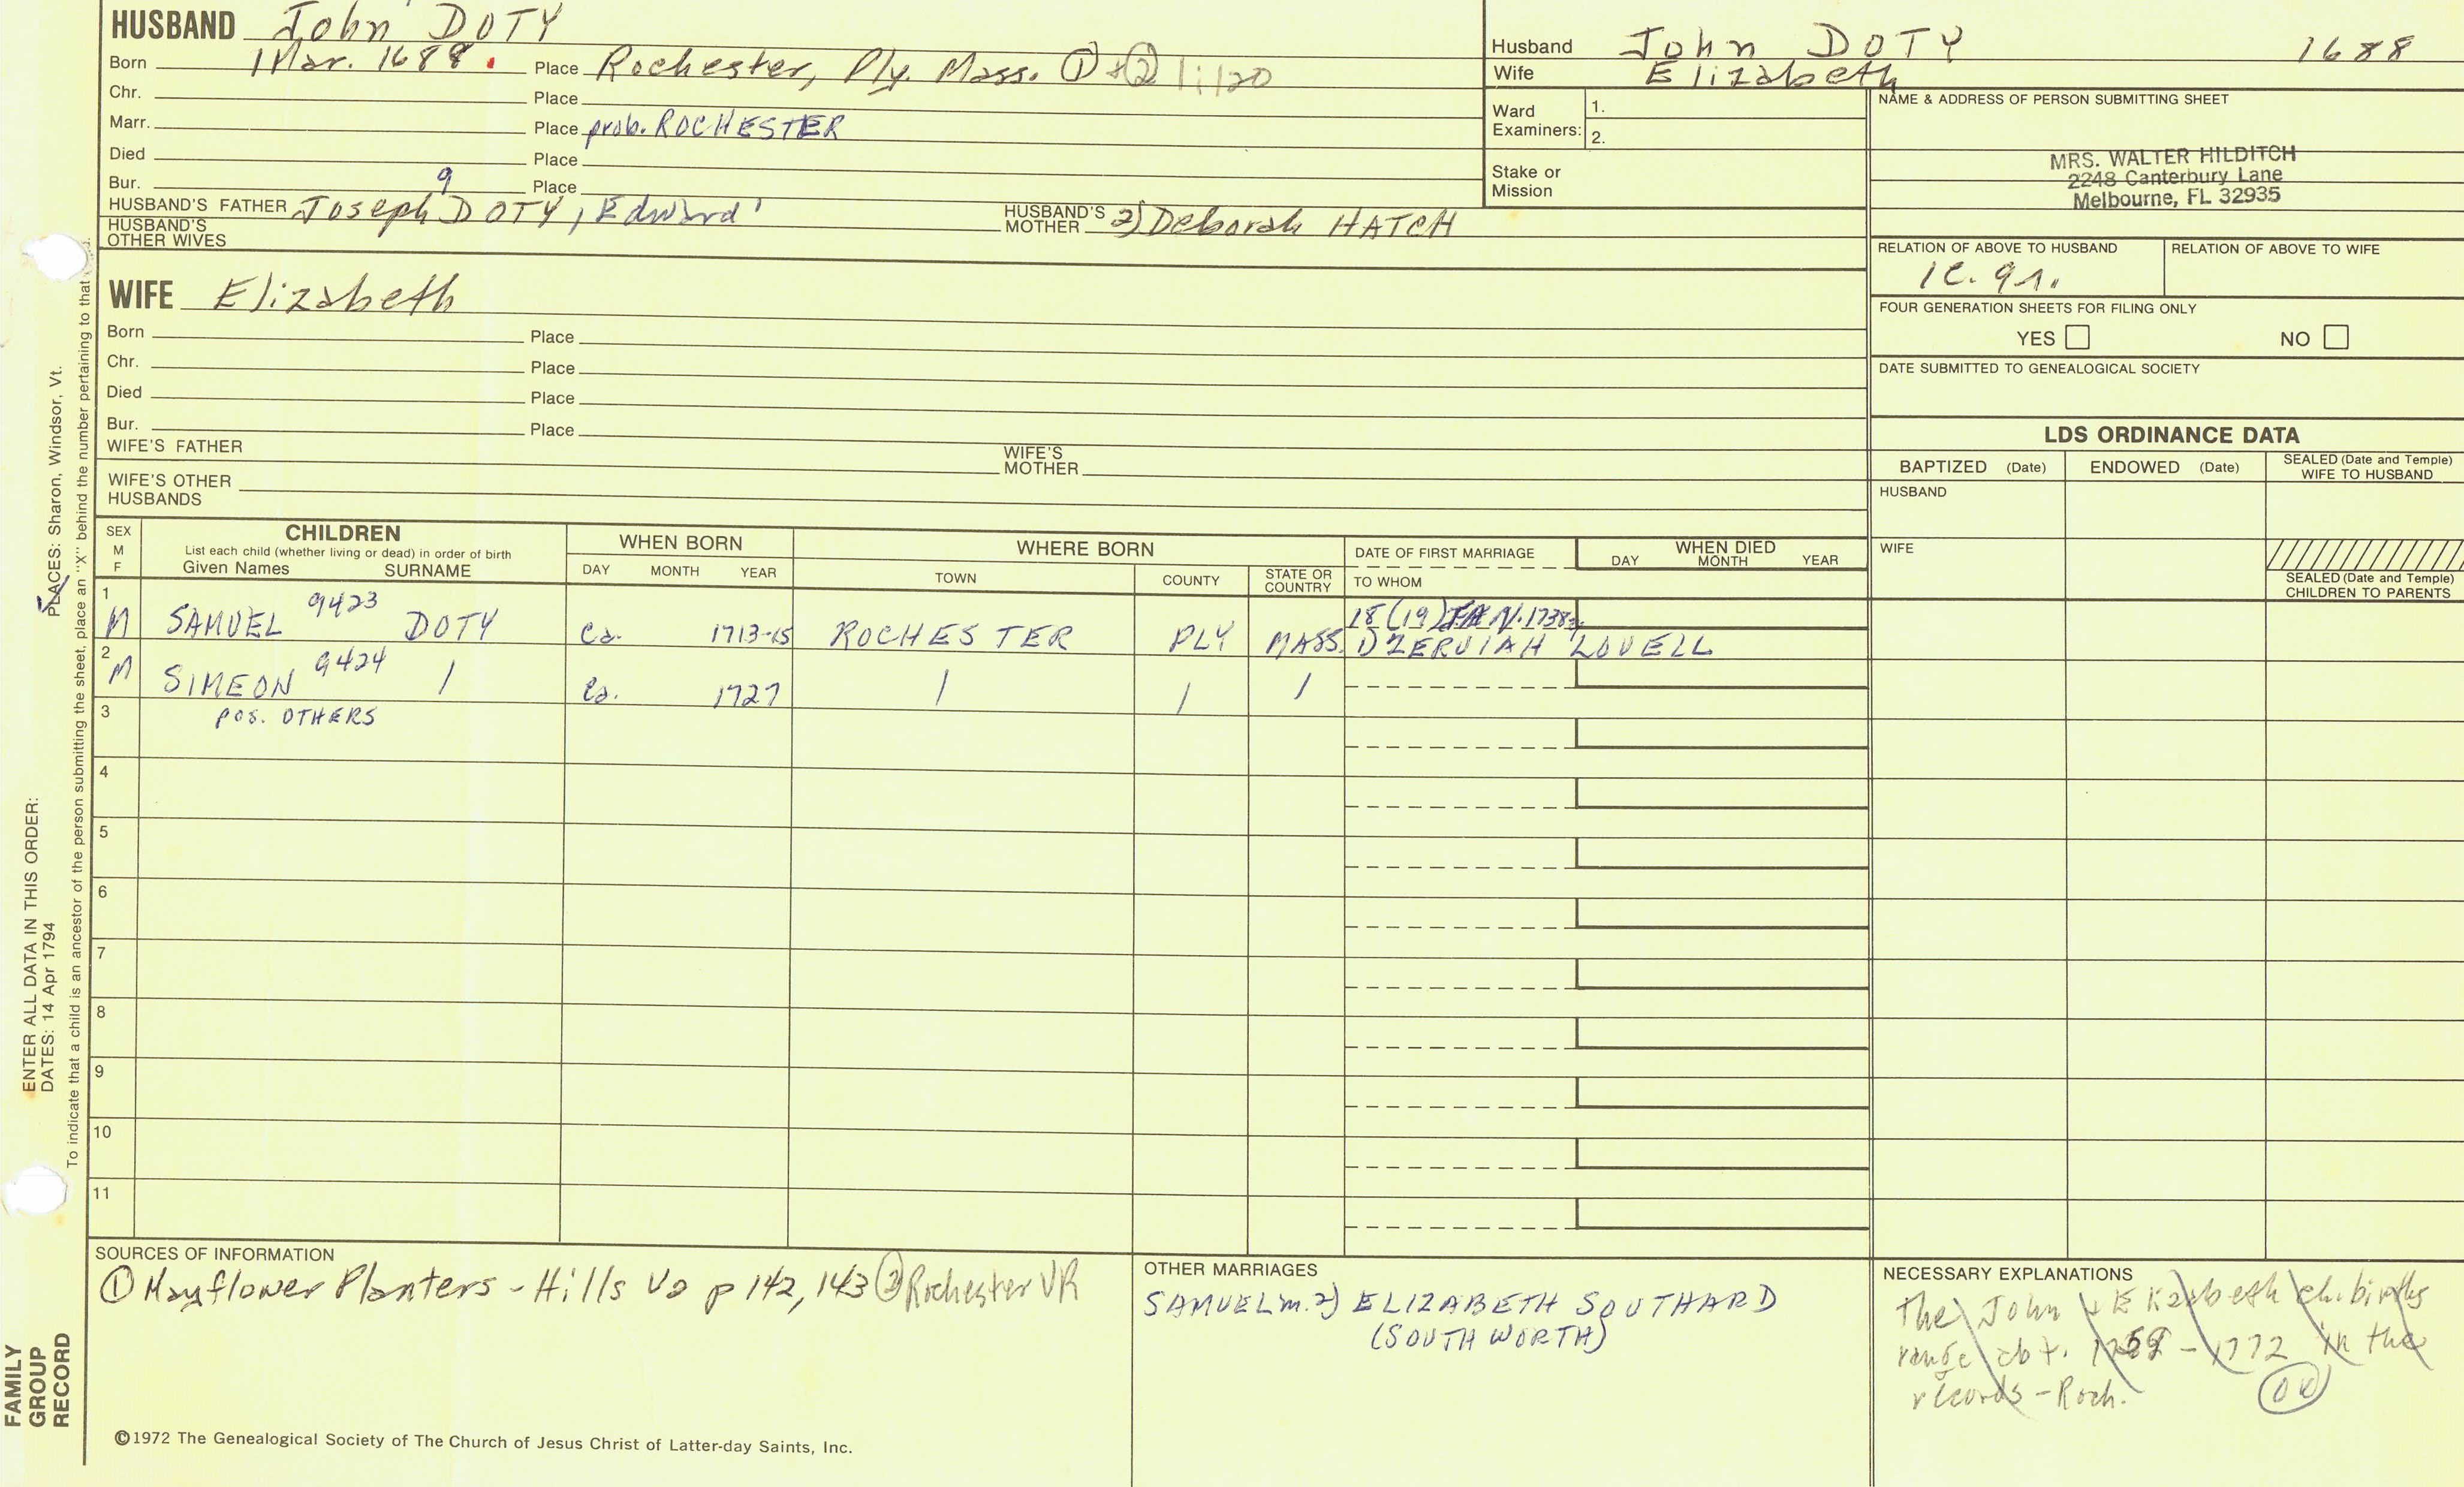 HUSBAND John DOTY
Born 1 Mar. 1688. Place Rochester, Ply. Mass. ① +② 1:120
Chr. Place
Marr. Place prob. ROCHESTER
Died Place
Bur. Place
9
HUSBAND'S FATHER Joseph DOTY, Edward' HUSBAND'S MOTHER 2) Deborah HATCH
HUSBAND'S OTHER WIVES
WIFE Elizabeth
Born Place
Chr. Place
Died Place
Bur. Place
WIFE'S FATHER WIFE'S MOTHER
WIFE'S OTHER HUSBANDS
Husband John DOTY 1688
Wife Elizabeth
Ward Examiners: 1.
2.
Stake or Mission
NAME & ADDRESS OF PERSON SUBMITTING SHEET
MRS. WALTER HILDITCH
2248 Canterbury Lane
Melbourne, FL 32935
RELATION OF ABOVE TO HUSBAND RELATION OF ABOVE TO WIFE
FOUR GENERATION SHEETS FOR FILING ONLY
YES NO
DATE SUBMITTED TO GENEALOGICAL SOCIETY
LDS ORDINANCE DATA
BAPTIZED (Date) ENDOWED (Date) SEALED (Date and Temple) WIFE TO HUSBAND
HUSBAND
WIFE
SEALED (Date and Temple) CHILDREN TO PARENTS
SEX M F CHILDREN
List each child (whether living or dead) in order of birth
Given Names SURNAME
WHEN BORN DAY MONTH YEAR
WHERE BORN TOWN COUNTY STATE OR COUNTRY
DATE OF FIRST MARRIAGE
TO WHOM
WHEN DIED DAY MONTH YEAR
1 M SAMUEL 9423 DOTY Ca. 1713-15 ROCHESTER PLY MASS. 18 (19) JAN. 1738
1) ZERUIAH LOVELL
2 M SIMEON 9424 / Ca. 1727 / / /
3 POS. OTHERS
4
5
6
7
8
9
10
11
SOURCES OF INFORMATION
① Mayflower Planters - Hills V2 p 142, 143 ② Rochester VR
OTHER MARRIAGES
SAMUEL m. 2) ELIZABETH SOUTHARD
(SOUTHWORTH)
NECESSARY EXPLANATIONS
The John + Elizabeth ch. births
range abt. - 1772 in the
records - Roch.
©1972 The Genealogical Society of The Church of Jesus Christ of Latter-day Saints, Inc.
FAMILY
GROUP
RECORD
ENTER ALL DATA IN THIS ORDER:
DATES: 14 Apr 1794
PLACES: Sharon, Windsor, Vt.
To indicate that a child is an ancestor of the person submitting the sheet, place an "X" behind the number pertaining to that